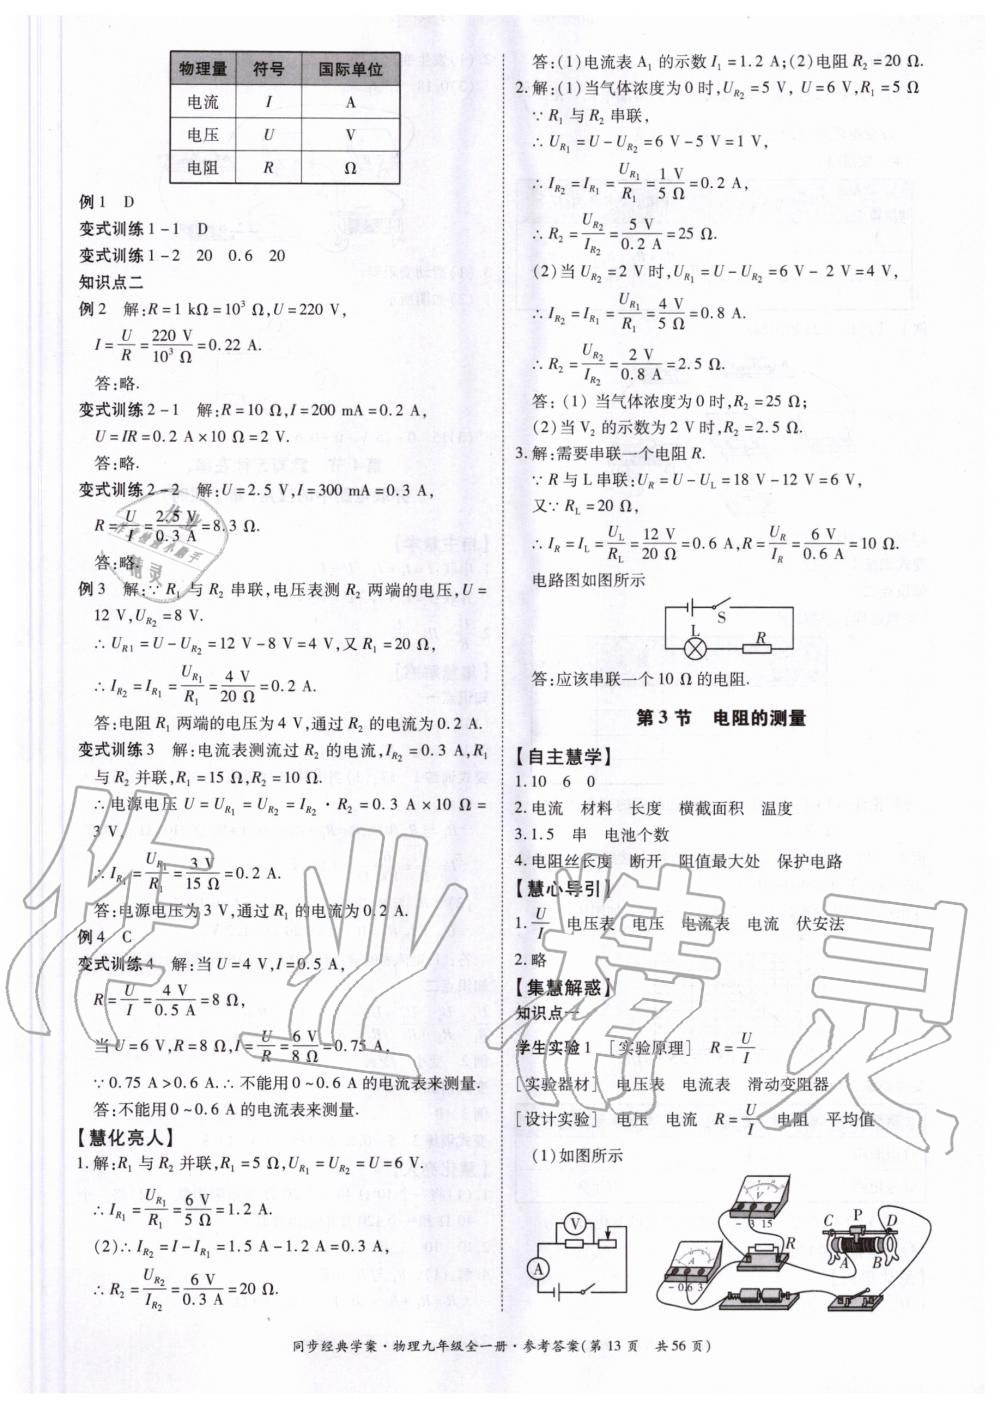 物理量 符号 国际单位
电流 I A
电压 U V
电阻 R Ω
例1 D
变式训练1-1 D
变式训练1-2 20 0.6 20
知识点二
例2 解:R=1 kΩ=10³ Ω,U=220 V,
I=U/R=220 V/10³ Ω=0.22 A.
答:略.
变式训练2-1 解:R=10 Ω,I=200 mA=0.2 A,
U=IR=0.2 A×10 Ω=2 V.
答:略.
变式训练2-2 解:U=2.5 V,I=300 mA=0.3 A,
R=U/I=2.5 V/0.3 A=8.3 Ω.
答:略.
例3 解:∵R₁与R₂串联,电压表测R₂两端的电压,U=
12 V,U_R₂=8 V.
∴U_R1=U-U_R₂=12 V-8 V=4 V,又R₁=20 Ω,
∴I_R₂=I_R₁=U_R₁/R₁=4 V/20 Ω=0.2 A.
答:电阻R₁两端的电压为4 V,通过R₂的电流为0.2 A.
变式训练3 解:电流表测流过R₂的电流,I_R₂=0.3 A,R₁
与R₂并联,R₁=15 Ω,R₂=10 Ω.
∴电源电压U=U_R₁=U_R₂=I_R₂·R₂=0.3 A×10 Ω=
3 V,
∴I_R₁=U_R₁/R₁=3 V/15 Ω=0.2 A.
答:电源电压为3 V,通过R₁的电流为0.2 A.
例4 C
变式训练4 解:当U=4 V,I=0.5 A,
R=U/I=4 V/0.5 A=8 Ω,
当U=6 V,R=8 Ω,I=U/R=6 V/8 Ω=0.75 A,
∵0.75 A>0.6 A.∴不能用0~0.6 A的电流表来测量.
答:不能用0~0.6 A的电流表来测量.
【慧化亮人】
1.解:R₁与R₂并联,R₁=5 Ω,U_R₁=U_R₂=U=6 V.
∴I_R₁=U_R₁/R₁=6 V/5 Ω=1.2 A.
(2)∴I_R₂=I-I_R₁=1.5 A-1.2 A=0.3 A,
∴R₂=U_R₂/I_R₂=6 V/0.3 A=20 Ω.
答:(1)电流表A₁的示数I₁=1.2 A;(2)电阻R₂=20 Ω.
2.解:(1)当气体浓度为0时,U_R₂=5 V,U=6 V,R₁=5 Ω
∵R₁与R₂串联,
∴U_R₁=U-U_R₂=6 V-5 V=1 V,
∴I_R₂=I_R₁=U_R₁/R₁=1 V/5 Ω=0.2 A,
∴R₂=U_R₂/I_R₂=5 V/0.2 A=25 Ω.
(2)当U_R₂=2 V时,U_R₁=U-U_R₂=6 V-2 V=4 V,
∴I_R₂=I_R₁=U_R₁/R₁=4 V/5 Ω=0.8 A.
∴R₂=U_R₂/I_R₂=2 V/0.8 A=2.5 Ω.
答:(1)当气体浓度为0时,R₂=25 Ω;
(2)当V₂的示数为2 V时,R₂=2.5 Ω.
3.解:需要串联一个电阻R.
∵R与L串联:U_R=U-U_L=18 V-12 V=6 V,
又∵R_L=20 Ω,
∴I_R=I_L=U_L/R_L=12 V/20 Ω=0.6 A,R=U_R/I_R=6 V/0.6 A=10 Ω.
电路图如图所示
S
L R
答:应该串联一个10 Ω的电阻.
第3节 电阻的测量
【自主慧学】
1.10 6 0
2.电流 材料 长度 横截面积 温度
3.1.5 串 电池个数
4.电阻丝长度 断开 阻值最大处 保护电路
【慧心导引】
1.U/I 电压表 电压 电流表 电流 伏安法
2.略
【集慧解惑】
知识点一
学生实验1 [实验原理] R=U/I
[实验器材] 电压表 电流表 滑动变阻器
[设计实验] 电压 电流 R=U/I 电阻 平均值
(1)如图所示
V
A
V
- 3 15
A
-0.6 3
R
C P D
A B
同步经典学案·物理九年级全一册·参考答案(第13页 共56页)
作业精灵
作业检查小助手